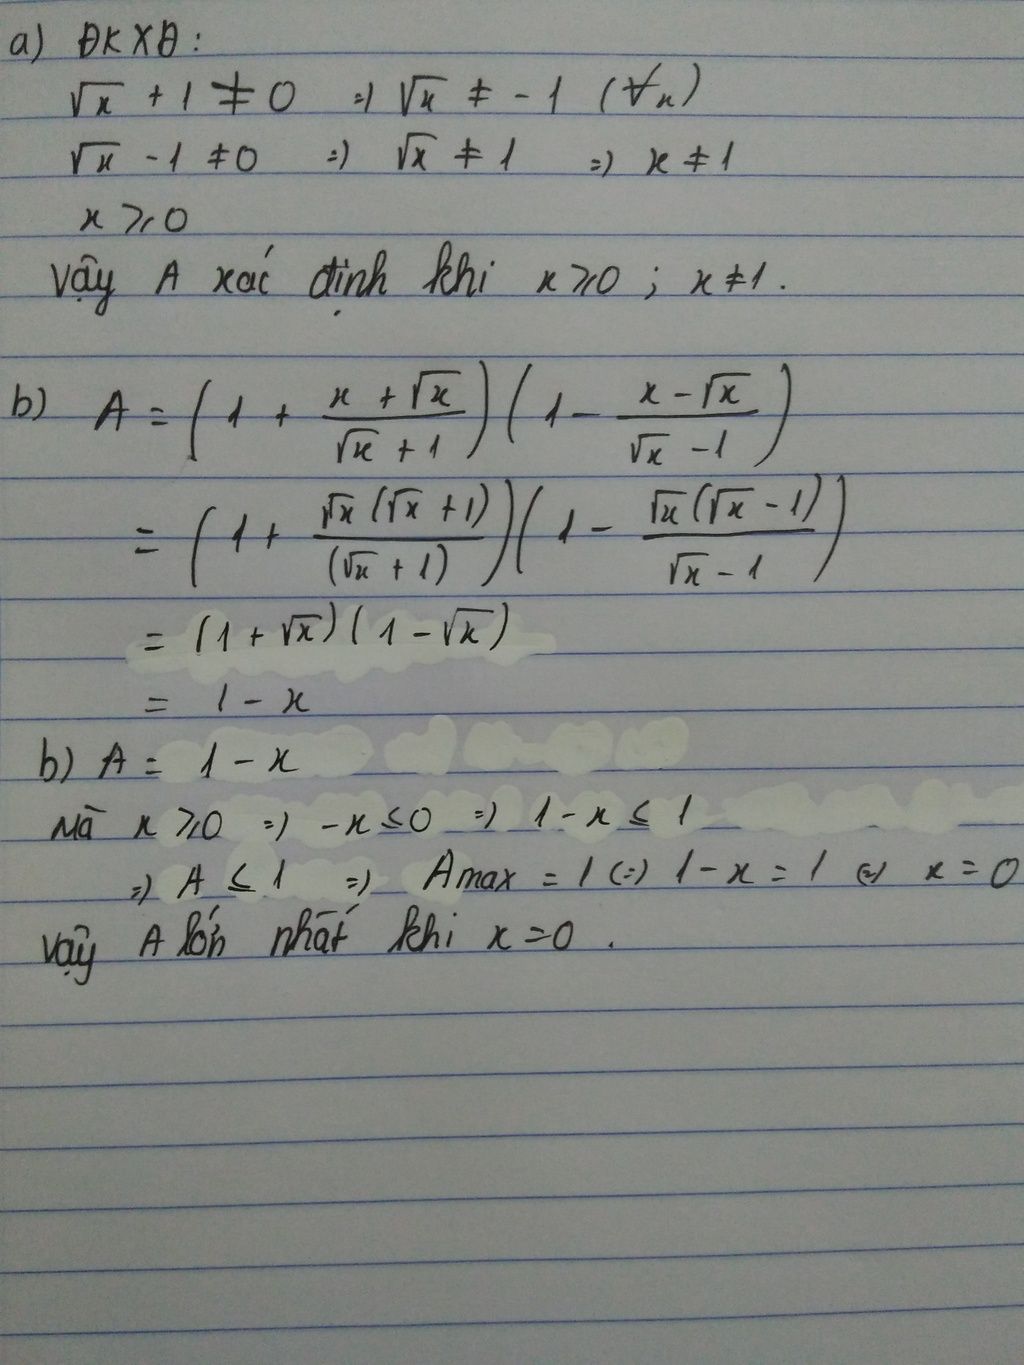 a) ĐKXĐ:
√x + 1 ≠ 0 => √x ≠ - 1 (∀x)
√x - 1 ≠ 0 => √x ≠ 1 => x ≠ 1
x ⩾ 0
Vậy A xác định khi x ⩾ 0 ; x ≠ 1.
b) A = (1 + (x + √x)/(√x + 1))(1 - (x - √x)/(√x - 1))
= (1 + (√x(√x + 1))/((√x + 1)))(1 - (√x(√x - 1))/(√x - 1))
= (1 + √x)(1 - √x)
= 1 - x
b) A = 1 - x
Mà x ⩾ 0 => -x ≤ 0 => 1 - x ≤ 1
=> A ≤ 1 => Amax = 1 (=) 1 - x = 1 (=) x = 0
Vậy A lớn nhất khi x = 0 .